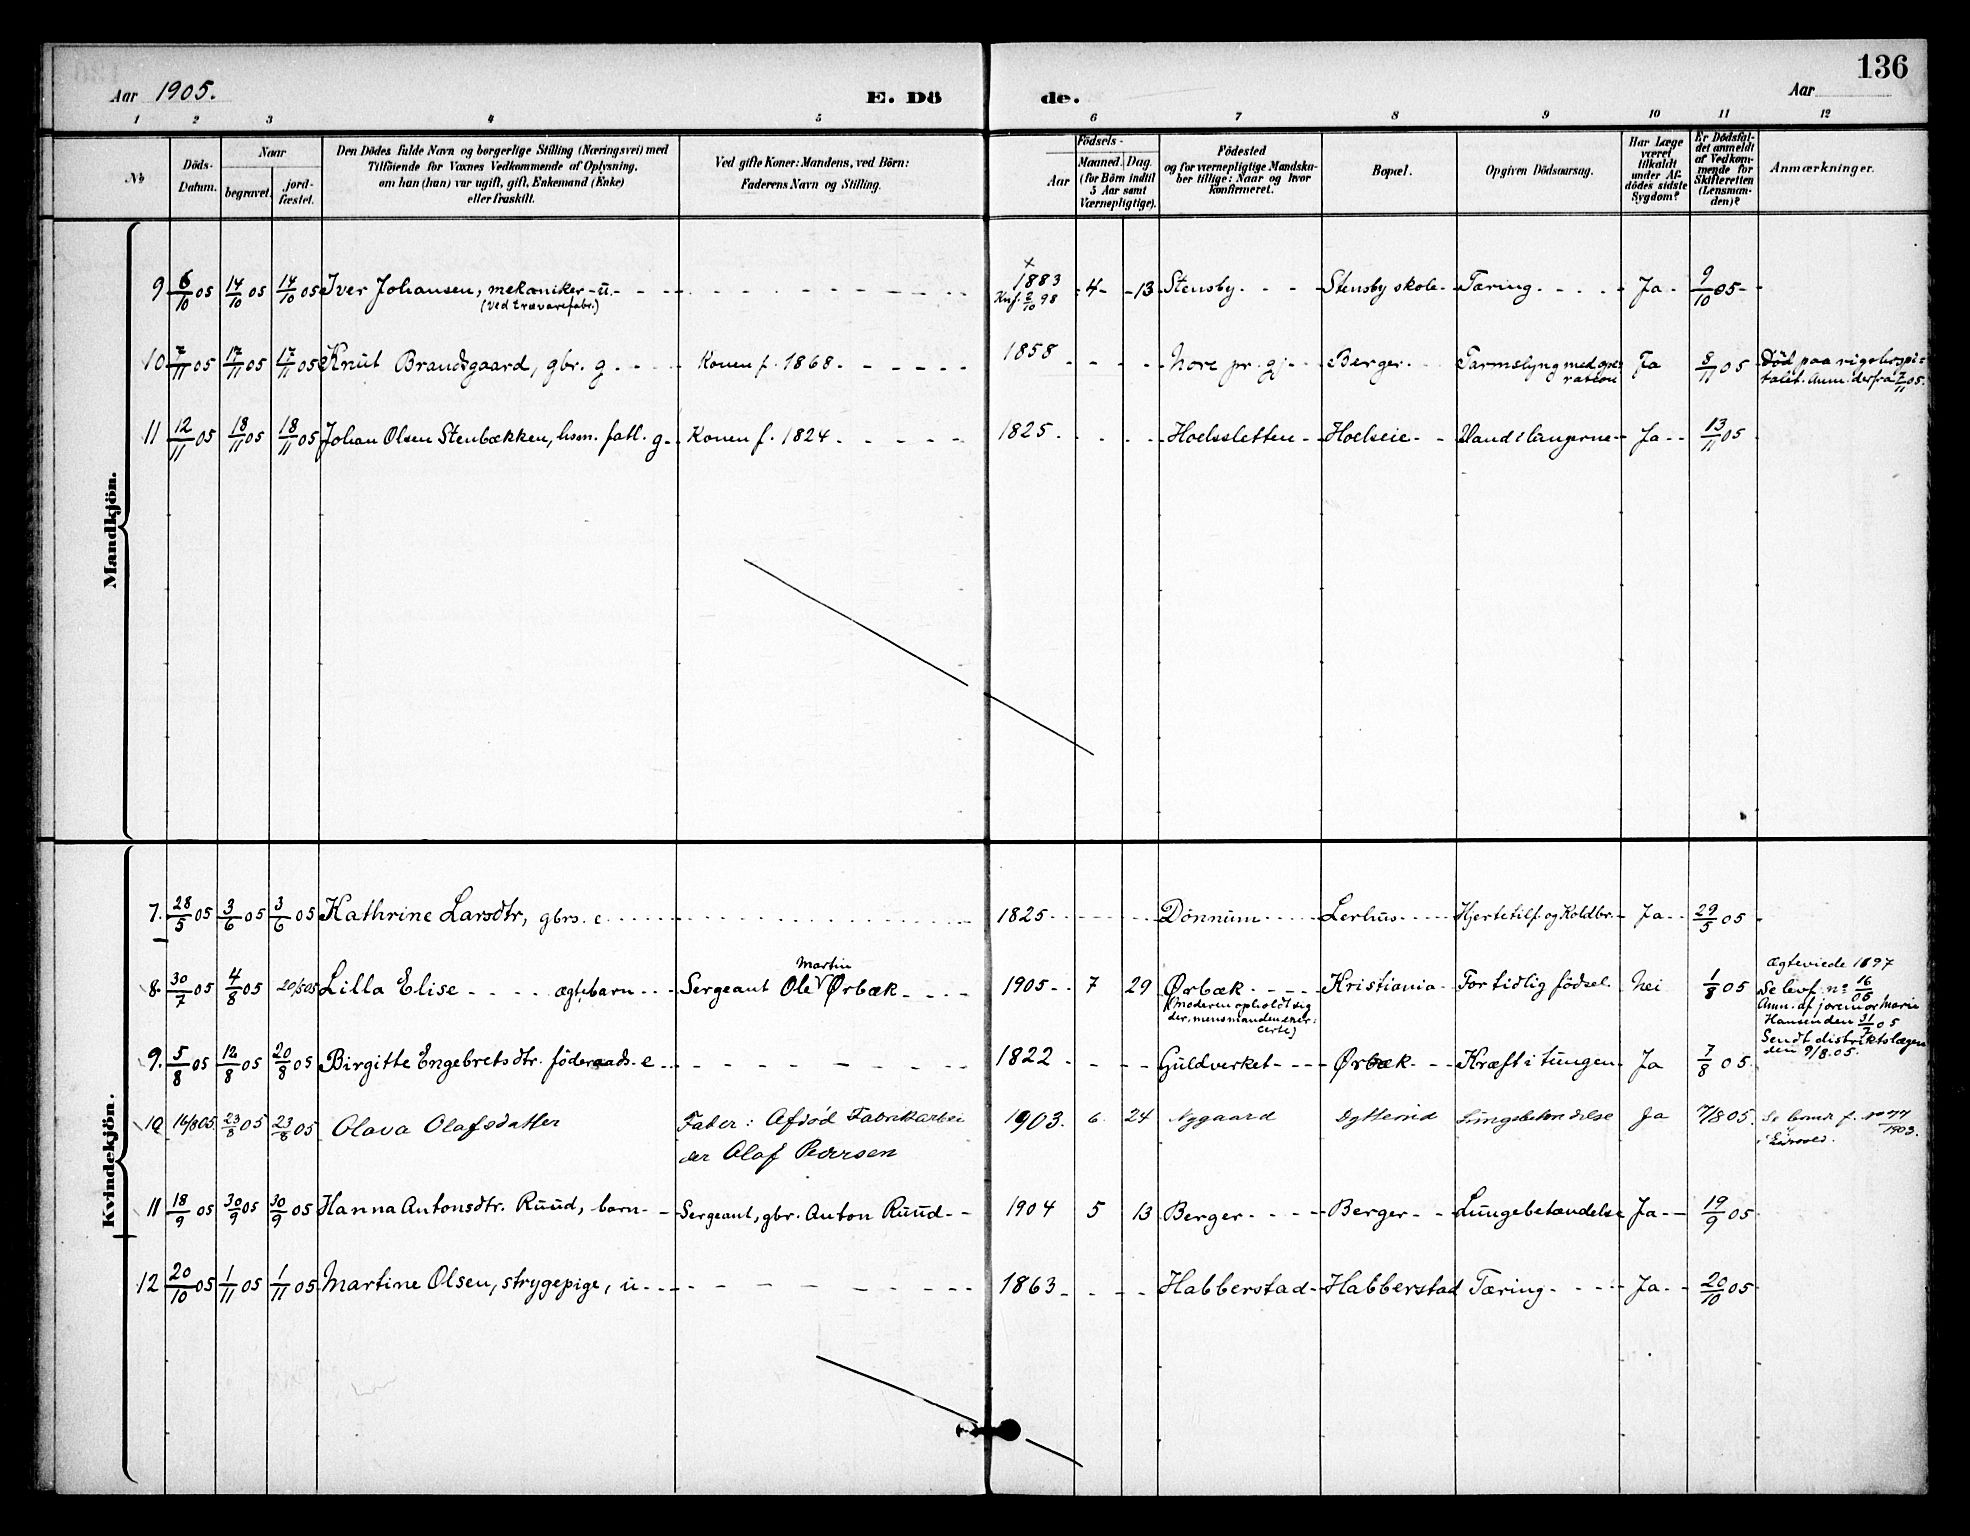 136
Aar 1905.
E. Dö
de.
Aar
1 2 3 4 5 6 7 8 9 10 11 12
No
Döds-Datum.
Naar
begravet.
jord-fæstet.
Den Dödes fulde Navn og borgerlige Stilling (Næringsvei) med
Tilföiende for Voxnes Vedkommende af Oplysning,
om han (hun) var ugift, gift, Enkemand (Enke)
eller fraskilt.
Ved gifte Koner: Mandens, ved Börn:
Faderens Navn og Stilling.
Födsels-
Aar
Maaned. Dag.
(for Börn indtil
5 Aar samt
Værnepligtige).
Födested
og for værnepligtige Mandska-
ber tillige: Naar og hvor
konfirmeret.
Bopæl.
Opgiven Dödsaarsag.
Har Læge
været
tilkaldt
under Af-
dödes sidste
Sygdom?
Er Dödsfal-
det anmeldt
af Vedkom-
mende for
Skifteretten
(Lensman-
den)?
Anmærkninger.
Mandkjön.
9 6/10 05 14/10 05 14/10 05 Iver Johansen, mekaniker - u. 1883 4 13 Stensby Stensby skole Tæring Ja 9/10 05
(ved trævarefabr.) Knf. 2/10 98
10 7/11 05 17/11 05 17/11 05 Knut Brandsgaard, gbr. g Konen f. 1868 1858 Nore pr. gj Berger Tarmslyng med ope- Ja 8/11 05 Död paa rigshospi-
ration talet. Anm. derfra 7/11 05.
11 12/11 05 18/11 05 18/11 05 Johan Olsen Stenbækken, hsm. fatl. g Konen f. 1824 1825 Hoelssletten Hoelseie Vand i lungerne Ja 13/11 05
Kvindekjön.
7. 28/5 05 3/6 05 3/6 05 Kathrine Larsdtr, gbrs. e 1825 Dönnum Lerhus Hjertetilf. og Koldbr. Ja 29/5 05
Martin
Ægteviede 1897
8. 30/7 05 4/8 05 20/8 05 Lilla Elise ægtebarn Sergeant Ole Ørbæk 1905 7 29 Ørbæk Kristiania For tidlig födsel Nei 1/8 05 Se levf. no 16/05
(Moderen opholdt sig
der, mens manden exer-
certe)
Anm. af jormor Marie
Hansen den 31/7 05
Sendt distriktslægen
den 9/8.05.
9. 5/8 05 12/8 05 20/8 05 Birgitte Engebretsdtr. föderaads. e 1822 Guldverket Ørbæk Kræft i tungen Ja 7/8 05
10 16/8 05 23/8 05 23/8 05 Olava Olafsdatter Fader: Afdöd Fabrikarbei 1903. 6 24 Nygaard Dytterud Lungebetændelse Ja 7/8 05. Se f. no 77/1903.
der Olaf Pedersen i Eidsvold.
11 18/9 05 30/9 05 30/9 05 Hanna Antonsdtr. Ruud, barn Sergeant, gbr. Anton Ruud 1904 5 13 Berger Berger Lungebetændelse Ja 19/9 05
12 20/10 05 1/11 05 1/11 05 Martine Olsen, strygepige, u 1863 Habberstad Habberstad Tæring Ja 20/10 05